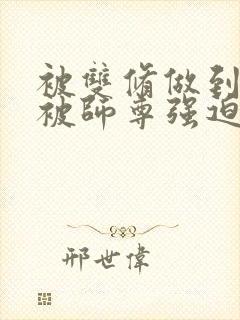 被雙脩做到
被師尊强迫
邢世偉